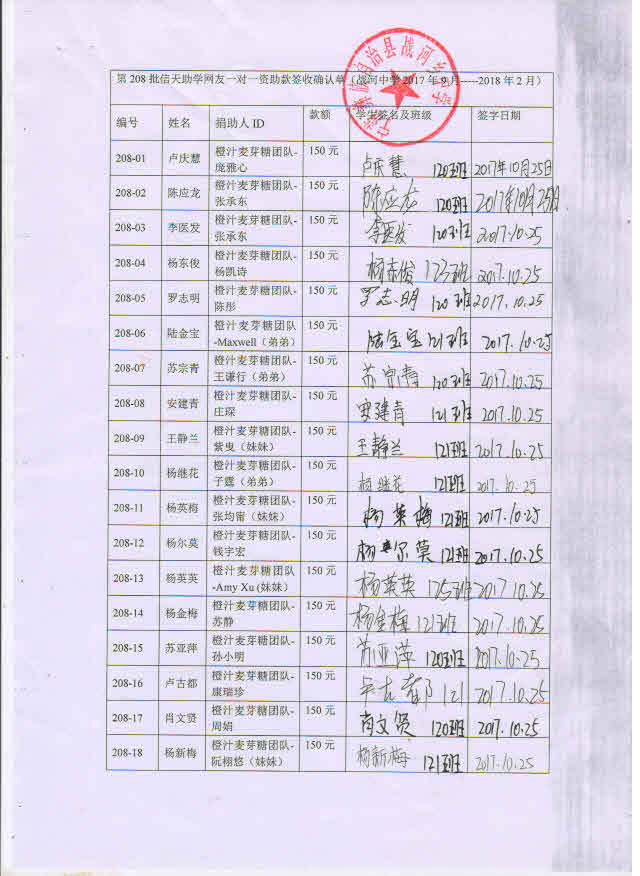 第 208 批信天助学网友一对一资助款签收确认单（战河中学 2017 年 9 月-----2018 年 2 月）
编号 姓名 捐助人 ID 款额 学生签名及班级 签字日期
208-01 卢庆慧 橙汁麦芽糖团队- 150 元 卢庆慧 120班 2017年10月25日
庞雅心
208-02 陈应龙 橙汁麦芽糖团队- 150 元 陈应龙 120班 2017年10月25日
张承东
208-03 李医发 橙汁麦芽糖团队- 150 元 李医发 120班 2017.10.25
张承东
208-04 杨东俊 橙汁麦芽糖团队- 150 元 杨东俊 123班 2017.10.25
杨凯诗
208-05 罗志明 橙汁麦芽糖团队- 150 元 罗志明 120班 2017.10.25
陈彤
208-06 陆金宝 橙汁麦芽糖团队 150 元 陆金宝 121班 2017.10.25
-Maxwell（弟弟）
208-07 苏宗青 橙汁麦芽糖团队- 150 元 苏宗青 120班 2017.10.25
王谦行（弟弟）
208-08 安建青 橙汁麦芽糖团队- 150 元 安建青 121班 2017.10.25
庄琛
208-09 王静兰 橙汁麦芽糖团队- 150 元 王静兰 121班 2017.10.25
紫曳（妹妹）
208-10 杨继花 橙汁麦芽糖团队- 150 元 杨继花 121班 2017.10.25
子霆（弟弟）
208-11 杨英梅 橙汁麦芽糖团队- 150 元 杨英梅 121班 2017.10.25
张均甯（妹妹）
208-12 杨尔莫 橙汁麦芽糖团队- 150 元 杨尔莫 121班 2017.10.25
钱宇宏
208-13 杨英英 橙汁麦芽糖团队 150 元 杨英英 125班 2017.10.25
-Amy Xu (妹妹）
208-14 杨金梅 橙汁麦芽糖团队- 150 元 杨金梅 121班 2017.10.25
苏静
208-15 苏亚萍 橙汁麦芽糖团队- 150 元 苏亚萍 120班 2017.10.25
孙小明
208-16 卢古都 橙汁麦芽糖团队- 150 元 卢古都 121 2017.10.25
康瑞珍
208-17 肖文贤 橙汁麦芽糖团队- 150 元 肖文贤 120班 2017.10.25
周娟
208-18 杨新梅 橙汁麦芽糖团队- 150 元 杨新梅 121班 2017.10.25
阮栩悠（妹妹）